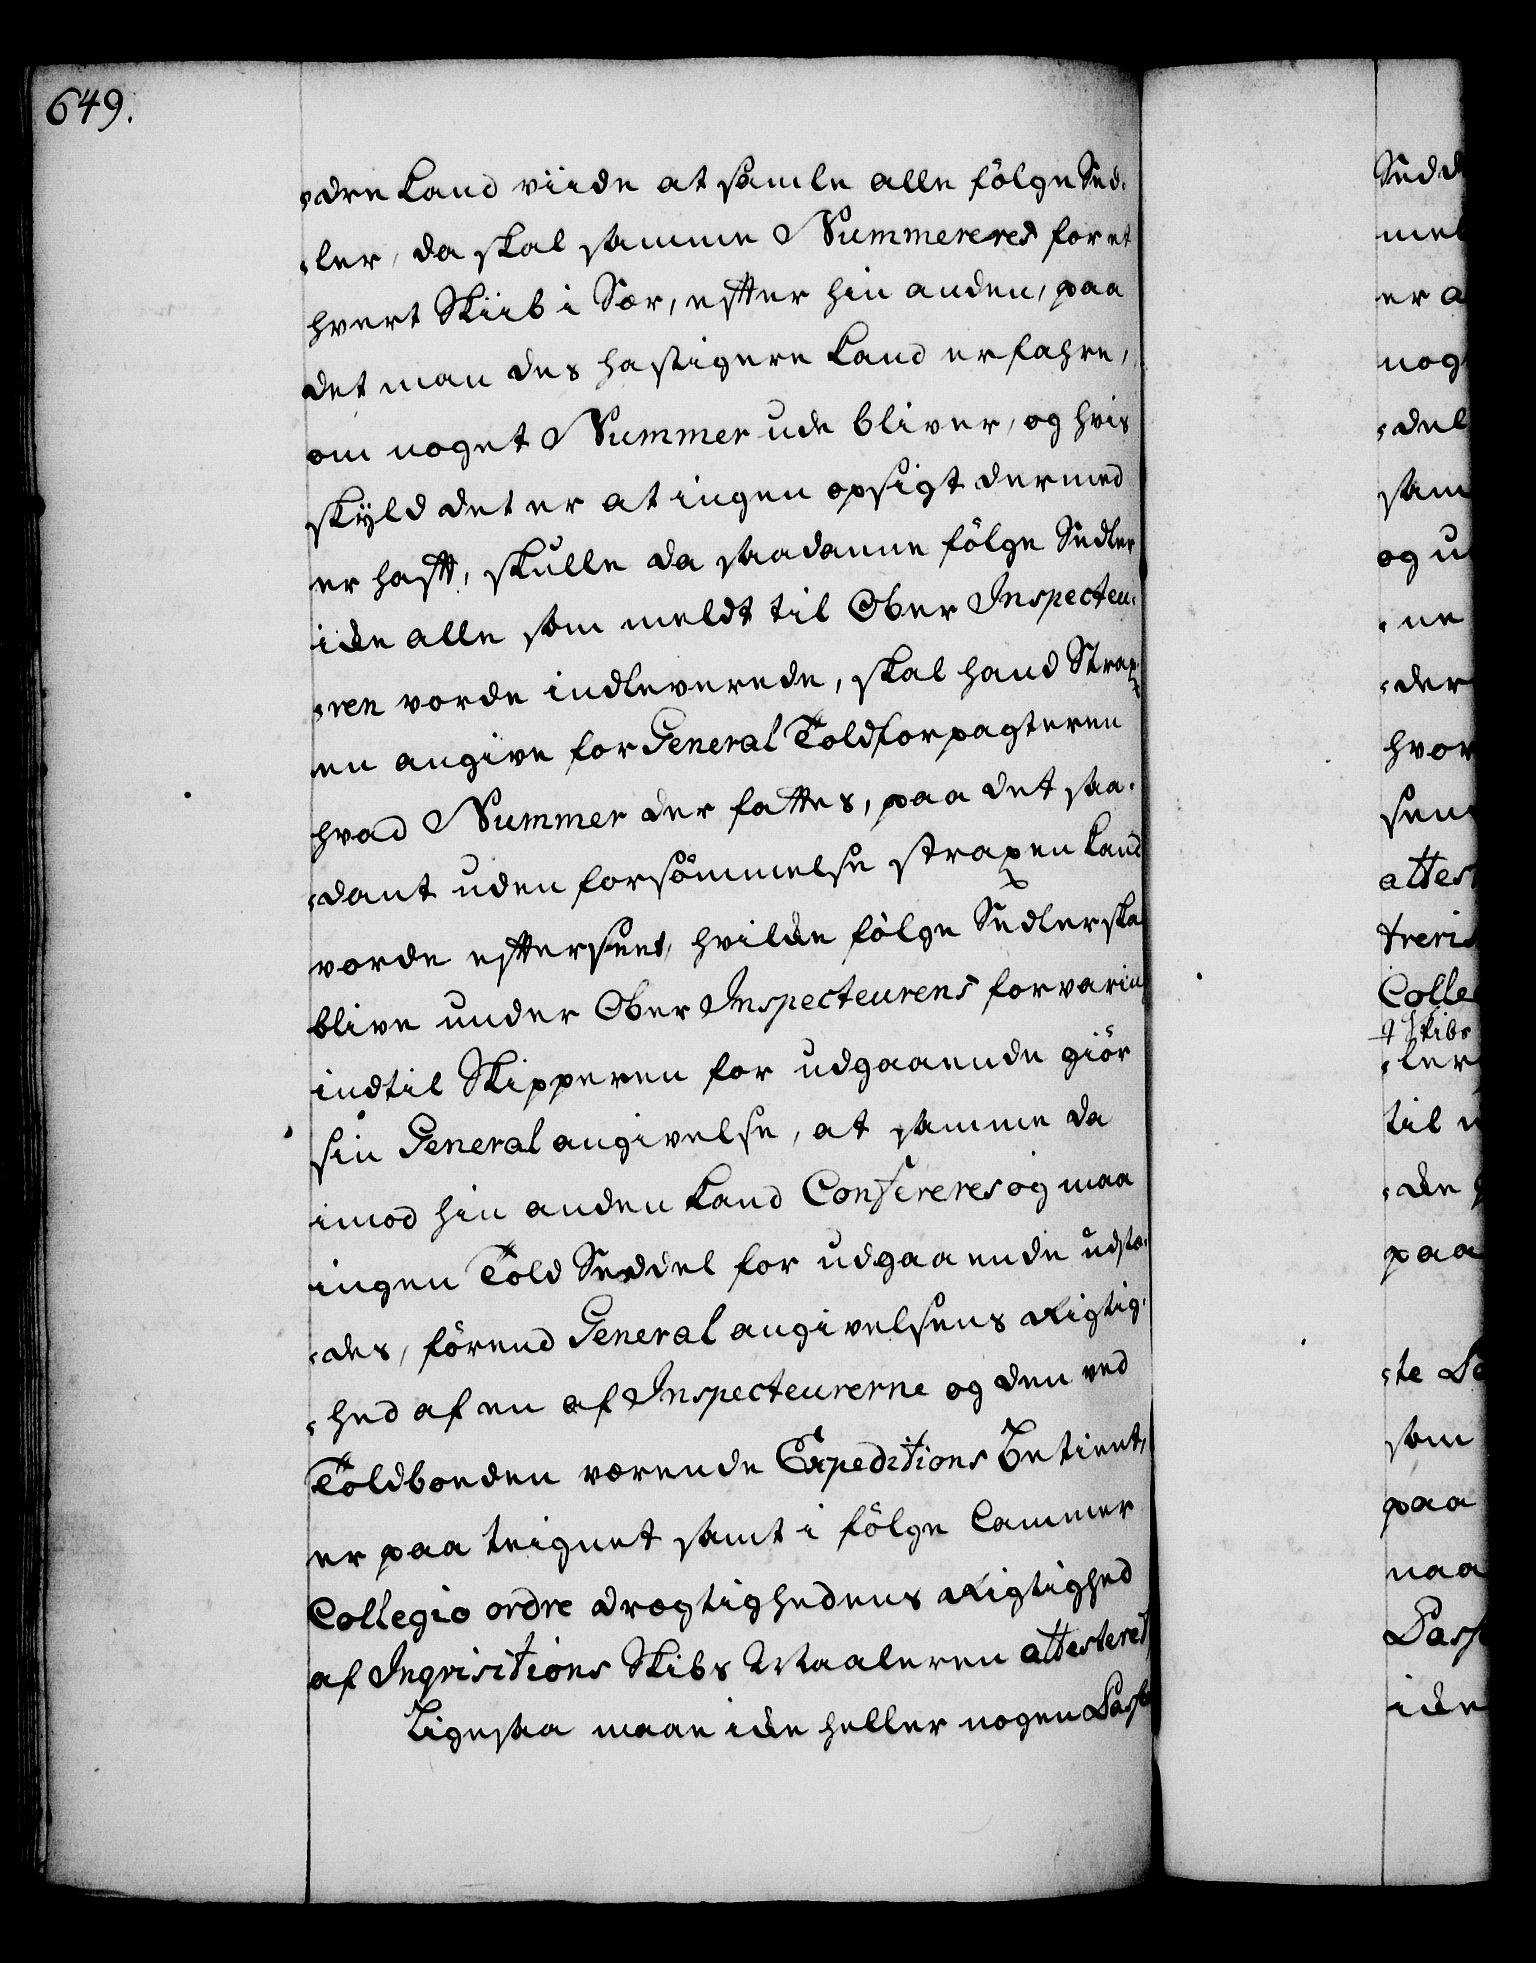 649.
:dre kand viide at samle alle fölge Sed:
:ler, da skal samme Nummereres for et
hvert Skiib i Sær, efter hin anden, paa
det man des hastigere kand erfahre,
om noget Nummer ude bliver, og hvis
skyld det er at ingen opsigt dermed
er hafft, skulle da saadanne fölge Sedler
icke alle som meldt til Ober Inspecteu:
:ren vorde indleverede, skal hand Strax
en angive for General Toldforpagteren
hvad Nummer der fattes, paa det saa:
:dant uden forsömmelse straxen kand
vorde efterseet, hvilcke fölge Sedler ska
blive under Ober Inspecteurens forvarin
indtil Skipperen for udgaaende giör
sin General angivelse, at samme da
imod hin anden kand Confereres og maa
ingen Told Seddel for udgaaende udstæ:
:des, förend General angivelsens Rigtig:
:hed af en af Inspecteurerne og den ved
Toldboeden værende Expeditions Betient,
er paa teignet samt i fölge Cammer
Collegio ordre drægtighedens Rigtighed
af Inqvisitions Skibs Maaleren attesteret,
Ligesaa maae icke heller nogen Passe
Sedd
mel
er a
nog
:del
sam
og u
:ne
:der
hvor
sen
attest
treris
Colle
Skibs
:ler
til
:de
paa
:te
som
paa
naa
Pass
icke